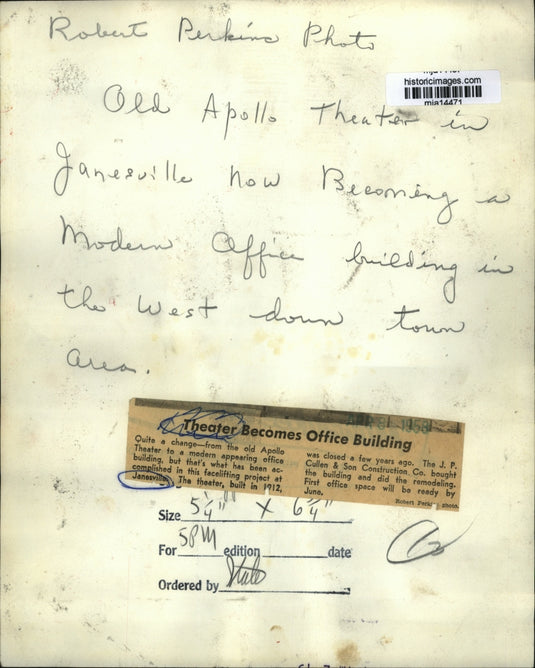 Robert Perkins Photo
historicimages.com
mja14471
Old Apollo Theater in
Janesville now Becoming a
Modern Office building in
the West down town
area.
1958
Theater Becomes Office Building
Quite a change—from the old Apollo
Theater to a modern appearing office
building, but that's what has been ac-
complished in this facelifting project at
Janesville. The theater, built in 1912,
was closed a few years ago. The J. P.
Cullen & Son Construction Co. bought
the building and did the remodeling.
First office space will be ready by
June.
Robert Perkins photo.
Size 5 1/4" X 6 3/4"
For 5PM edition date
Ordered by State